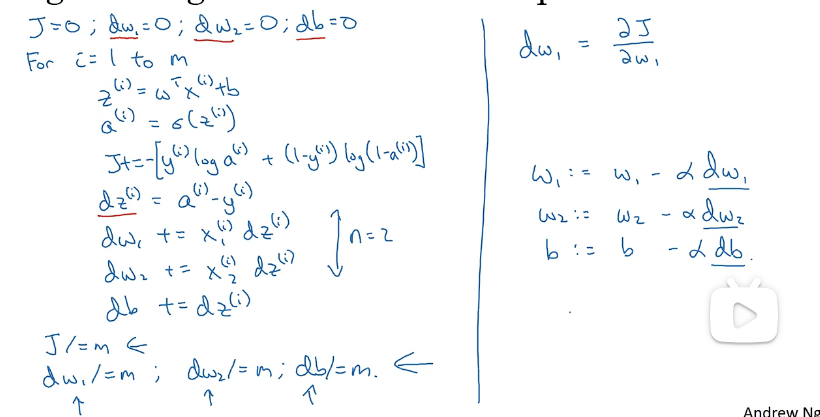 J=0 ; dw₁=0 ; dw₂=0 ; db=0
For i=1 to m
z⁽ⁱ⁾ = wᵀx⁽ⁱ⁾+b
a⁽ⁱ⁾ = σ(z⁽ⁱ⁾)
J+=-[y⁽ⁱ⁾ log a⁽ⁱ⁾ + (1-y⁽ⁱ⁾) log(1-a⁽ⁱ⁾)]
dz⁽ⁱ⁾ = a⁽ⁱ⁾-y⁽ⁱ⁾
dw₁ += x₁⁽ⁱ⁾ dz⁽ⁱ⁾
dw₂ += x₂⁽ⁱ⁾ dz⁽ⁱ⁾
n=2
db += dz⁽ⁱ⁾
J/=m ←
dw₁/=m ; dw₂/=m ; db/=m. ←
↑ ↑ ↑
dw₁ = ∂J/∂w₁
w₁ := w₁ - α dw₁
w₂ := w₂ - α dw₂
b := b - α db.
Andrew Ng